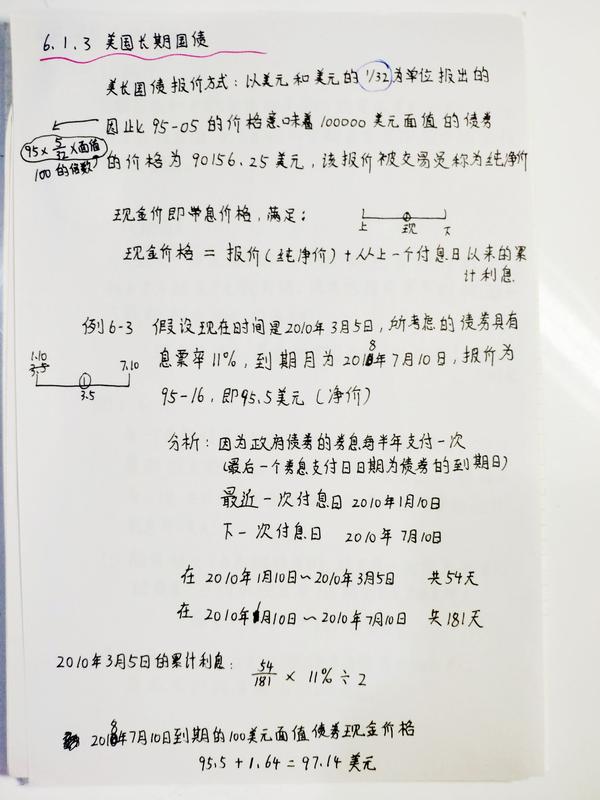 6.1.3 美国长期国债
美长国债报价方式：以美元和美元的1/32为单位报出的
因此 95-05 的价格意味着 100000 美元面值的债券
95 × 5/32 × 面值
100 的倍数
的价格为 90156.25 美元，该报价被交易员称为纯净价
现金价即带息价格，满足：
上 现 下
现金价格 = 报价（纯净价）+ 从上一个付息日以来的累
计利息
例6-3 假设现在时间是2010年3月5日，所考虑的债券具有
息票率11%，到期月为2018年7月10日，报价为
1.10
3.5
7.10
1
3.5
95-16，即95.5美元（净价）
分析：因为政府债券的券息每半年支付一次
（最后一个券息支付日日期为债券的到期日）
最近一次付息日 2010年1月10日
下一次付息日 2010年7月10日
在 2010年1月10日～2010年3月5日 共54天
在 2010年1月10日～2010年7月10日 共181天
2010年3月5日的累计利息：54/181 × 11% ÷ 2
2018年7月10日到期的100美元面值债券现金价格
95.5 + 1.64 = 97.14 美元